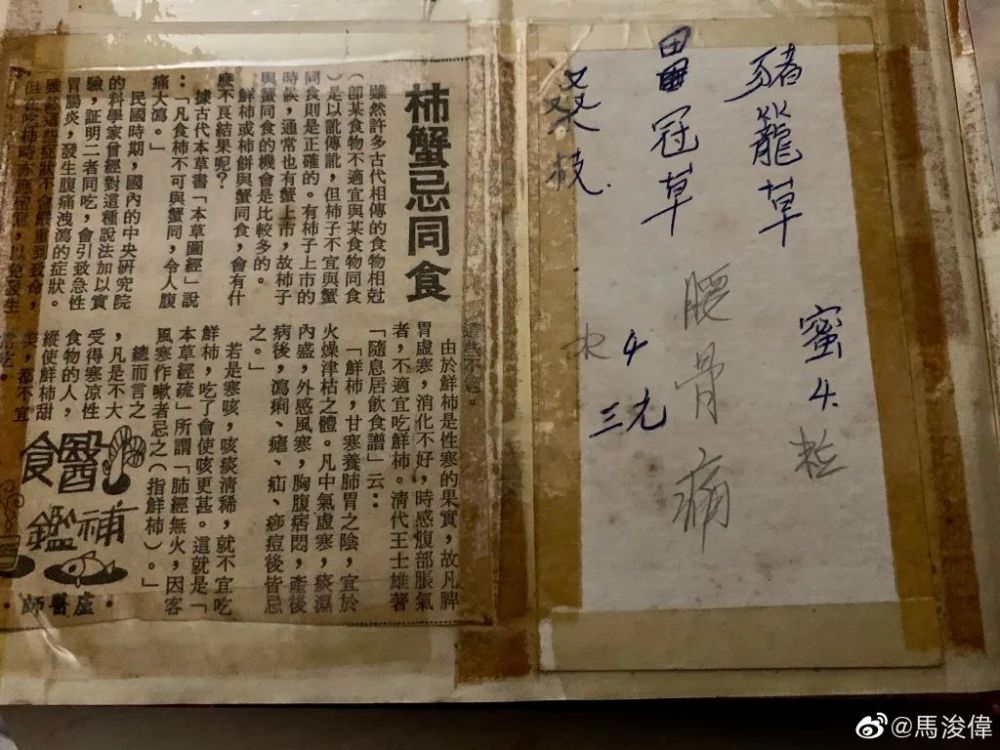 柿蟹忌同食
雖然許多古代相傳的食物相尅
(即某食物不適宜與某食物同食
)是以訛傳訛,但柿子不宜與蟹
同食則是正確的。有柿子上市的
時候,通常也有蟹上市,故柿子
與蟹同食的機會是比較多的。
鮮柿或柿餅與蟹同食,會有什
麼不良結果呢?
據古代本草書「本草圖經」說
:「凡食柿不可與蟹同,令人腹
痛大瀉。」
民國時期,國內的中央研究院
的科學家曾經對這種說法加以實
驗,証明二者同吃,會引致急性
胃腸炎,發生腹痛洩瀉的症狀。
雖然這些症狀不會嚴重到致命,
以免發生
由於鮮柿是性寒的果實,故凡脾
胃虛寒,消化不好,時感腹部脹氣
者,不適宜吃鮮柿。清代王士雄著
「隨息居飲食譜」云:
「鮮柿,甘寒養肺胃之陰,宜於
火燥津枯之體。凡中氣虛寒,痰濕
內盛,外感風寒,胸腹痞悶,產後
病後,瀉痢、瘧、疝、痧痘後皆忌
之。」
若是寒咳,咳痰清稀,就不宜吃
鮮柿,吃了會使咳更甚。這就是「
本草經疏」所謂「肺經無火,因客
風寒作嗽者忌之(指鮮柿)。」
總而言之
,凡是不大
受得寒凉性
食物的人,
縱使鮮柿甜
美,都不宜
食醫
鑑補
·盧醫師·
豬籠草
雞冠草
桑枝
腰骨痛
蜜4粒
水4
三元
@馬浚偉